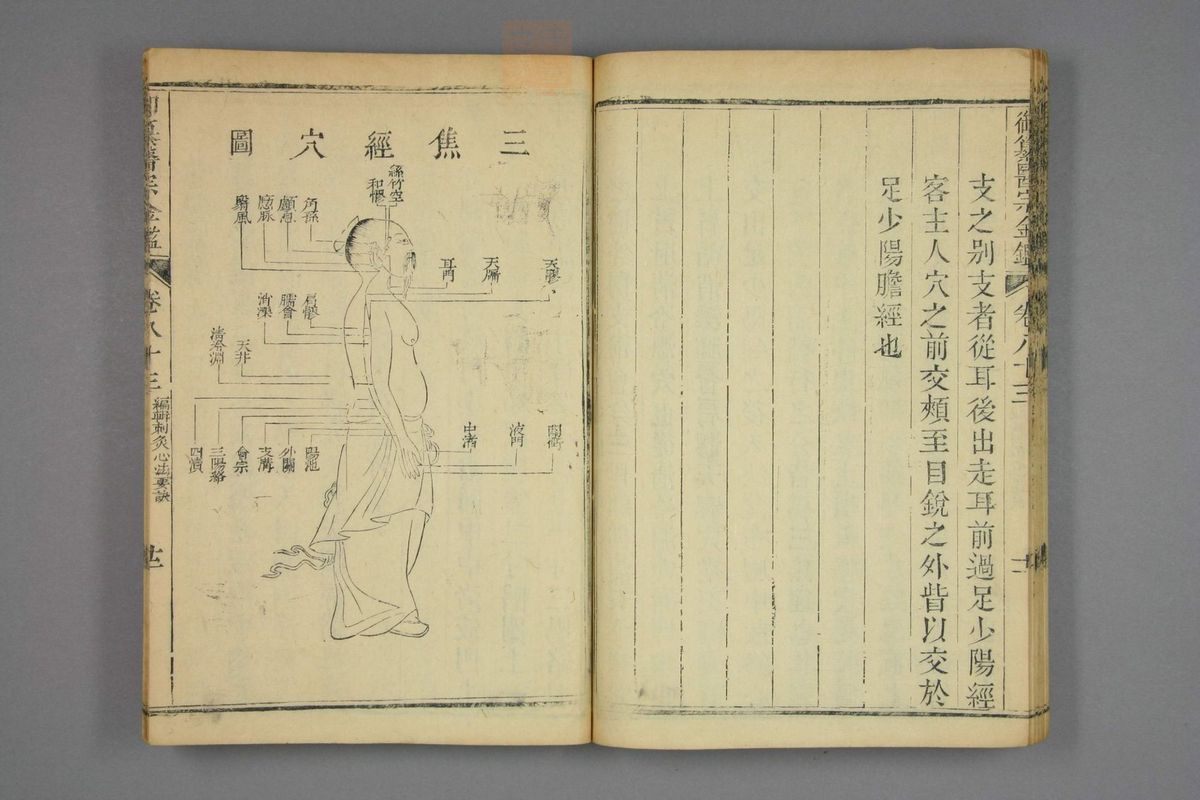 御纂醫宗金鑑
卷八十三
支之别支者從耳後出走耳前過足少陽經
客主人穴之前交頰至目銳之外眥以交於
足少陽膽經也
三焦經穴圖
絲竹空
和髎
角孫
顱息
瘈脉
翳風
天髎
天牖
耳門
肩髎
臑會
消濼
天井
清冷淵
關衝
液門
中渚
陽池
外關
支溝
會宗
三陽絡
四瀆
醫宗金鑑
卷八十三
編輯刺灸心法要訣